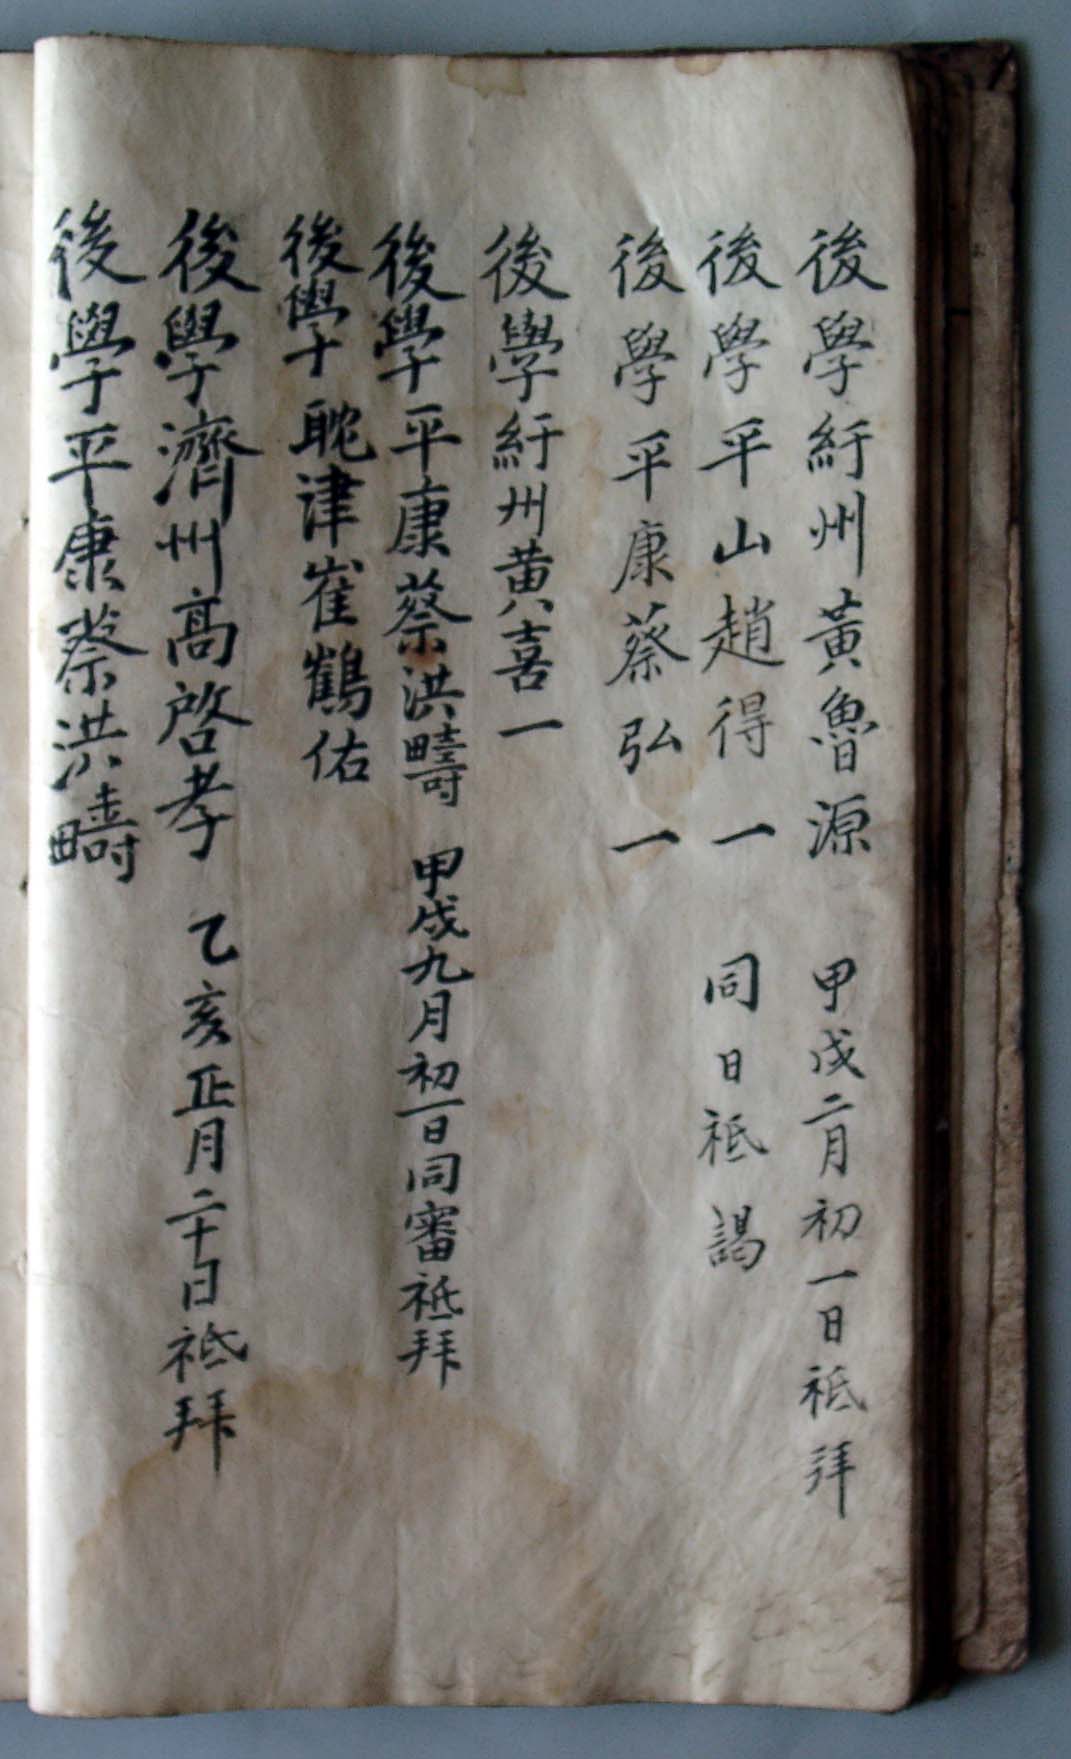 後學紆州黃魯源 甲戌二月初一日祗拜
後學平山趙得一 同日祗謁
後學平康蔡弘一
後學紆州黄喜一
後學平康蔡洪疇 甲戌九月初一日同審祗拜
後學耽津崔鶴佑
後學濟州高啓孝 乙亥正月二十日祗拜
後學平康蔡洪疇